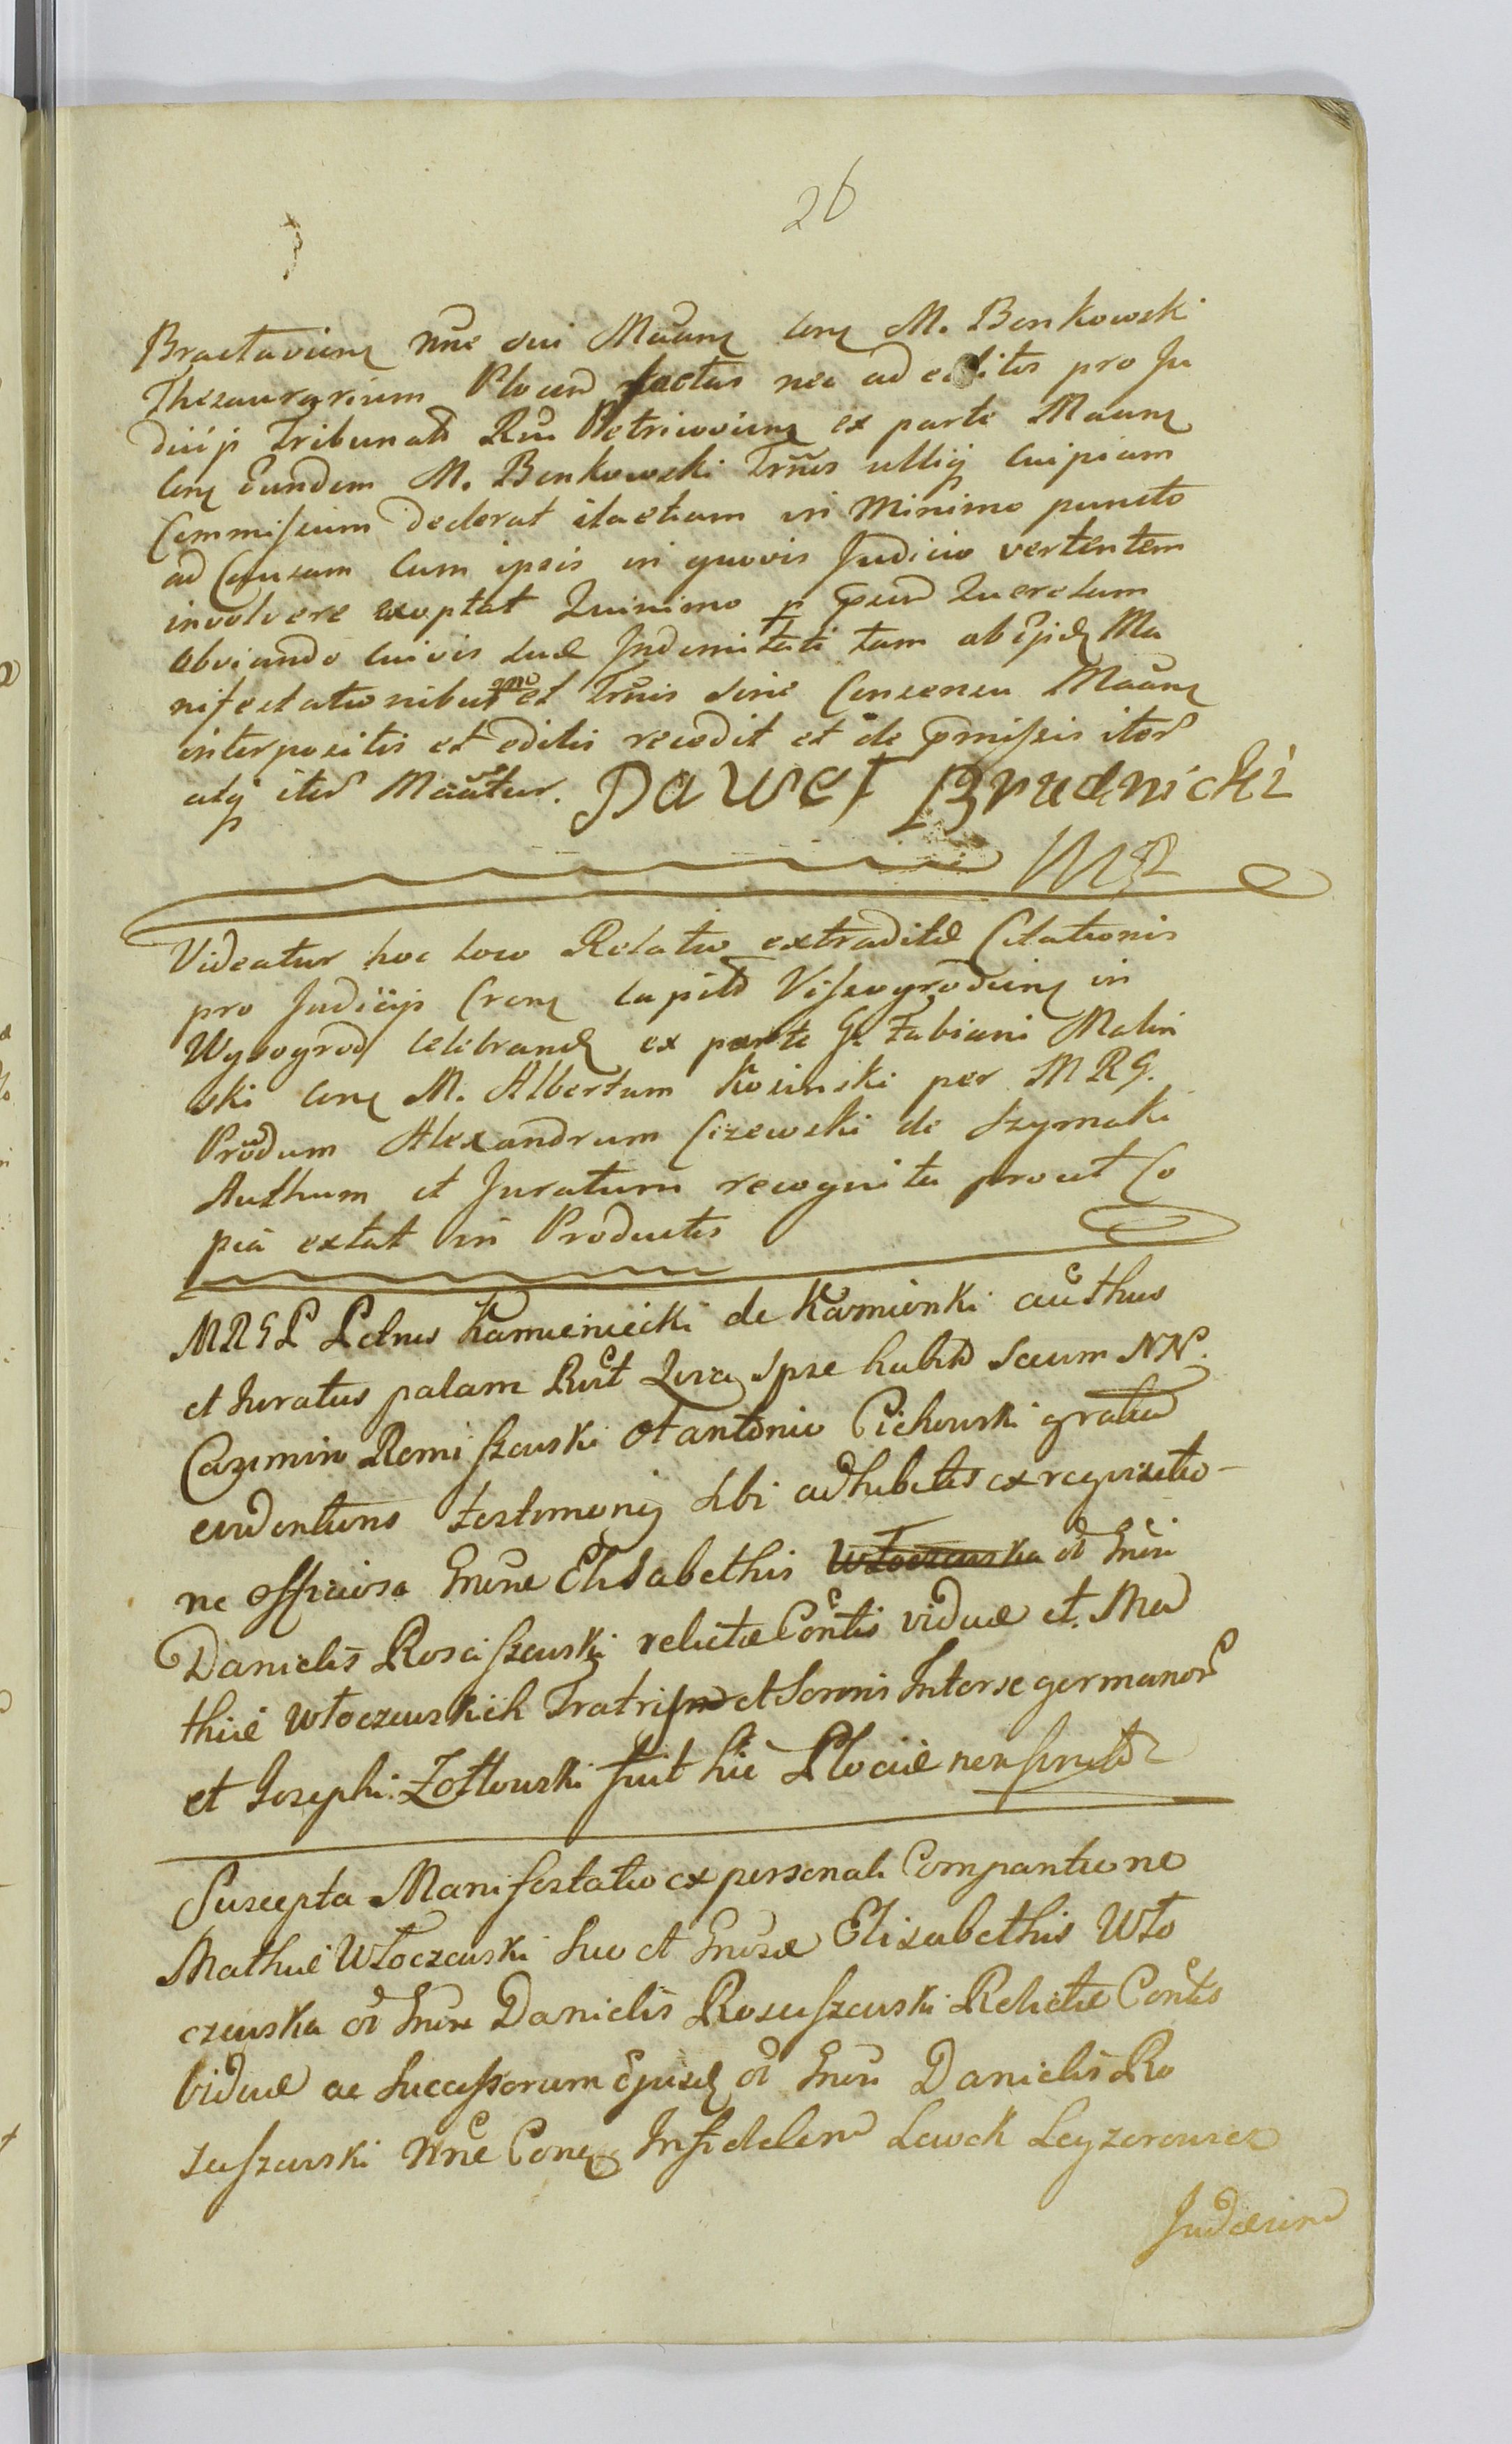 26
Bractavien nne sui Maan con M. Benkowski
Thezaurarium Plocen factas nec ad editos pro Ju
diciis Tribunats Rni Petricovien ex parte Maan
con Eundem M. Benkowski Trnis ulliq cuipiam
Commissum dederat ita etiam in minimo puncto
ad Causam cum ipsis in quovis Judicio vertentem
involvere exoptat Quinimo p Querelam
obviando cuivis suæ Indemnitati tam ab Ma
nifestationibus et Trnis sine Consensu Maan
interpositis et editis recedit et de pmissis iter
atq iter Maatur. Paweł Brudnicki
Videatur hoc loco Relatio extraditæ Citationis
pro Judiciis Cren capitl Vissogrodien in
Wyszogrod celebrand ex parte G. Fabiani Malin
ski con M. Albertum Kosinski per MRG.
Prodm Alexandrum Cizewski de Szymaki
Authum et Juratum recognita prout Co
pia extat in Productis
MRGL Petrus Kamieniecki de Kamionki authus
et Juratus palam Rect Quia Ipse habitis Secum NN.
Cazimiro Romiszewski et antonio Cichowski gratia
evidentions testimonij sibi adhibitis ex requisitio-
ne officiosa Gnesne Elisabethis Włoczewska ol Gnsi
Danielis Rosciszewski relictæ Contis viduæ et Ma
thiæ Włoczewskich Fratris et Sororis Inter se germanor
et Josephi Zołtowski fuit hic Plociæ
Suscepta Manifestatio ex personali Comparitione
Mathiæ Włoczewski suo et Gnsæ Elisabethis Wło
czewska ol Gnsi Danielis Rosciszewski Relictæ Contis
Viduæ ac Successorum Ejusd ol Gnsi Danielis Ro
sciszewski nne Con Infidelem Lewek Leyzerowicz
Judæum